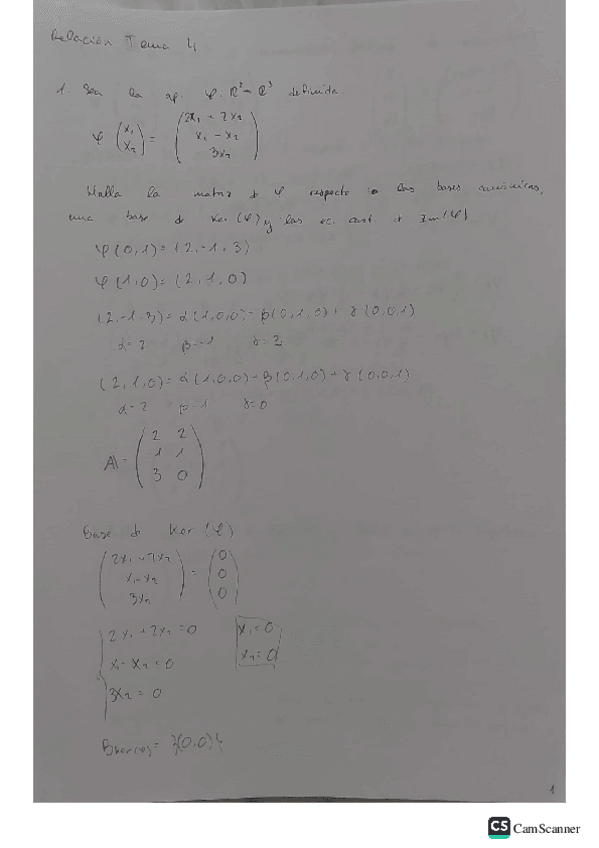 Relación Tema 4
1. Sea la ap. φ: R² → R³ definida
φ (x₁ x₂) = (2x₁ + 2x₂
x₁ - x₂
3x₂)
Halla la matriz d φ respecto a las bases canónicas,
una base d Ker (φ) y las ec. cart. d Im (φ)
φ(0,1) = (2,-1,3)
φ(1,0) = (2,1,0)
(2,-1,3) = α(1,0,0) + β(0,1,0) + γ(0,0,1)
α=2 β=-1 γ=3
(2,1,0) = α(1,0,0) + β(0,1,0) + γ(0,0,1)
α=2 β=1 γ=0
A = (2 2
1 1
3 0)
Base d Ker (φ)
(2x₁ + 2x₂
x₁ - x₂
3x₂) = (0 0 0)
2x₁ + 2x₂ = 0 x₁ = 0
x₁ - x₂ = 0 x₂ = 0
3x₂ = 0
B ker(φ) = {(0,0)}
1
CS CamScanner